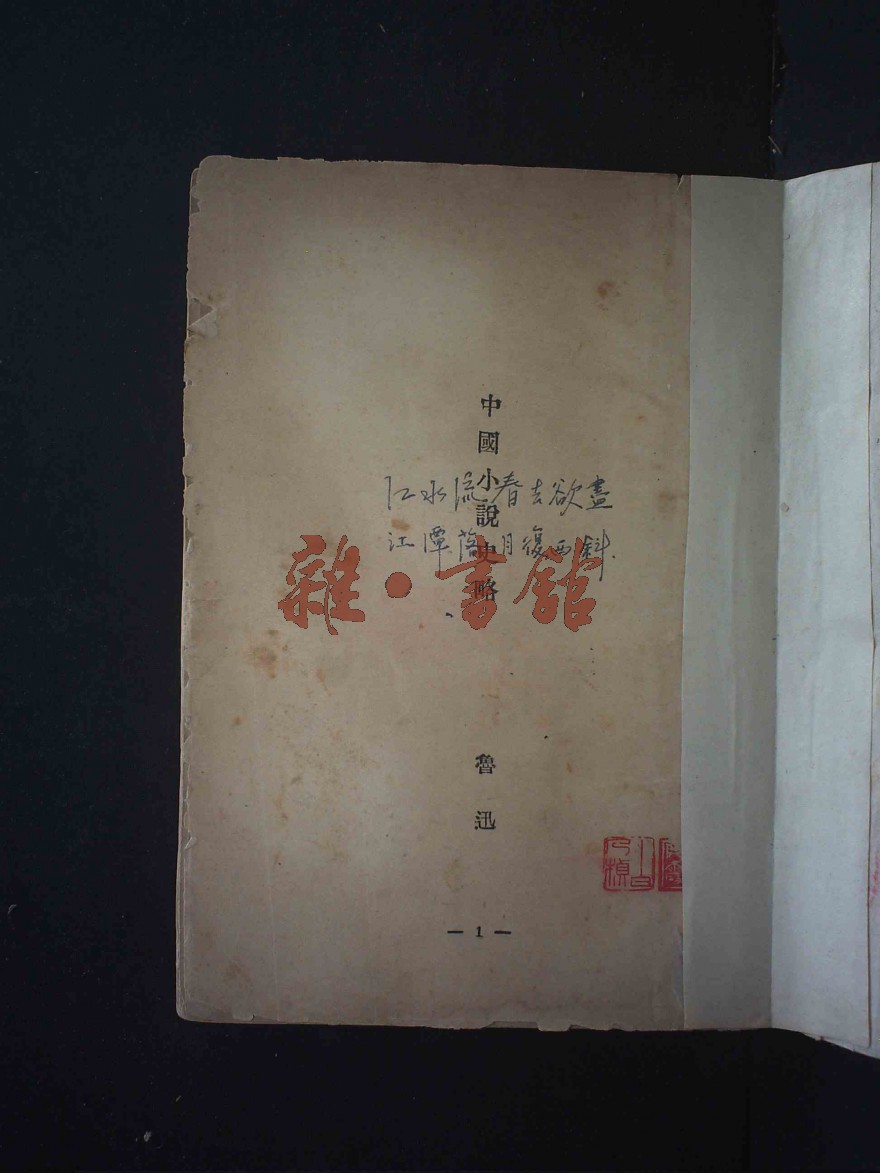 中國小說史略
江水流春去欲盡
江潭落月復西斜
雜·書館
魯迅
— 1 —